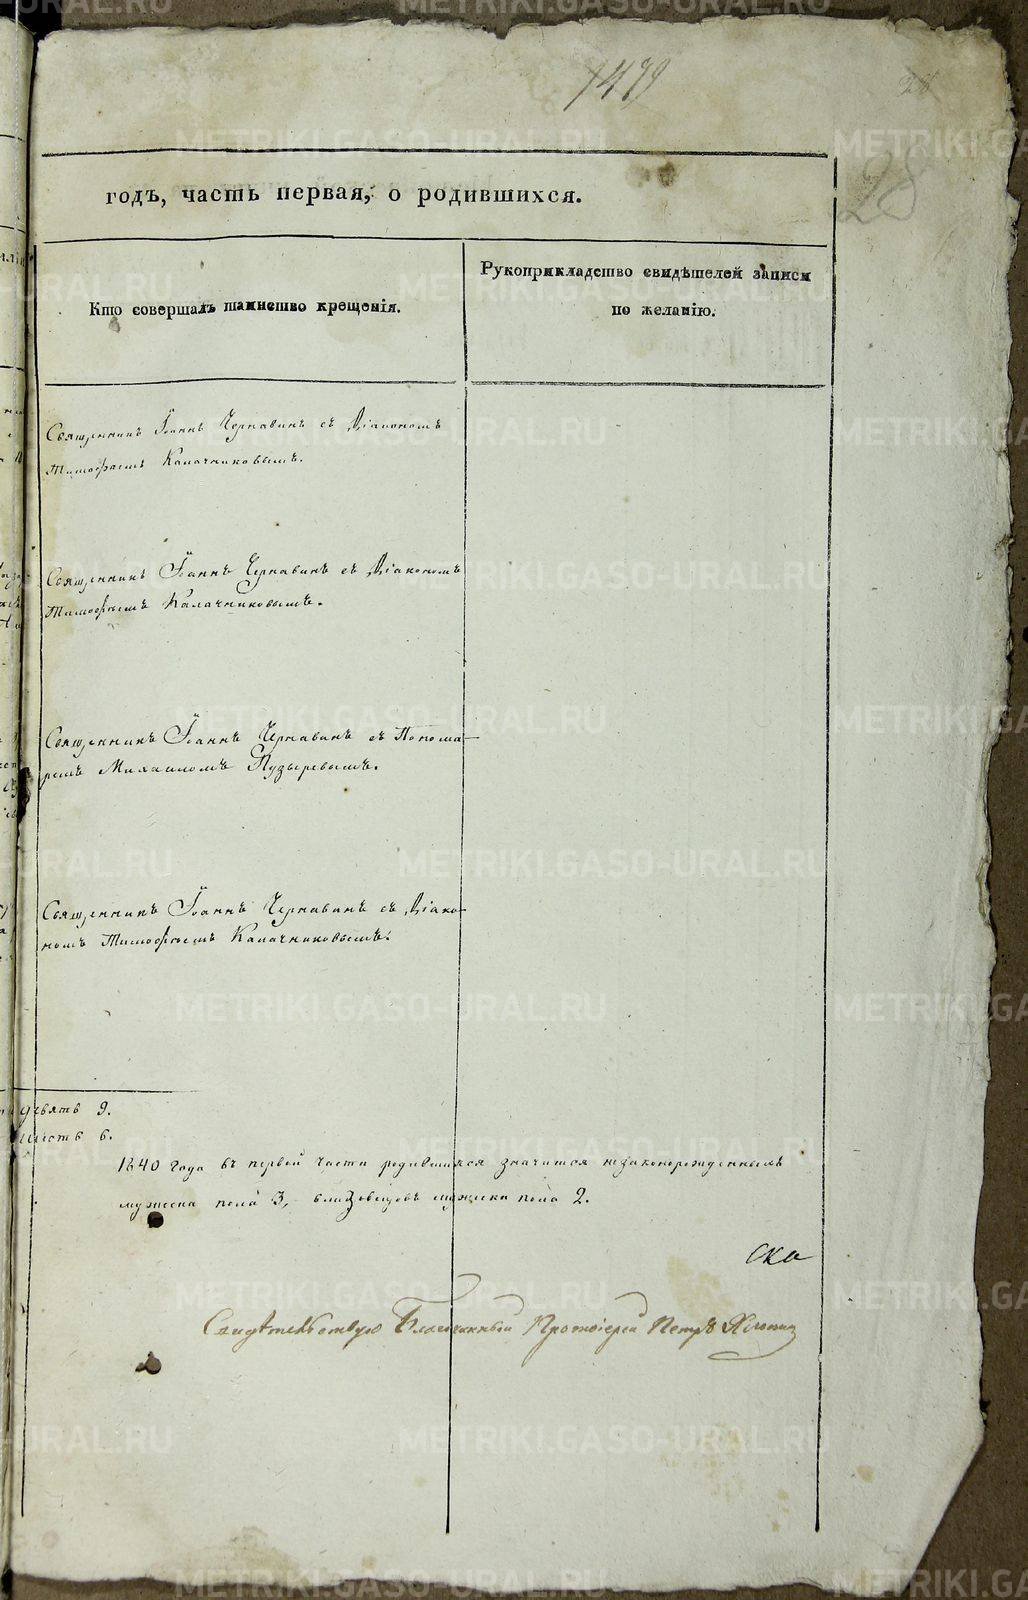 1479
28
28
годъ, часть первая, о родившихся.
Кто совершалъ таинство крещенія.
Рукоприкладство свидѣтелей записи
по желанію.
Священникъ Іоаннъ Чернавинъ съ Діакономъ
Тимофѣемъ Калачниковымъ.
Священникъ Іоаннъ Чернавинъ съ Діакономъ
Тимофѣемъ Калачниковымъ.
Священникъ Іоаннъ Чернавинъ съ Понома-
ремъ Михаиломъ Пузыревымъ.
Священникъ Іоаннъ Чернавинъ съ Діако-
номъ Тимофѣемъ Калачниковымъ.
девять 9.
шесть 6.
1840 года въ первой части родившихся значится незаконорожденныхъ
мужеска пола 3, близнецовъ мужеска пола 2.
Свидѣтельствую Благочинный Протоіерей Петръ
METRIKI.GASO-URAL.RU